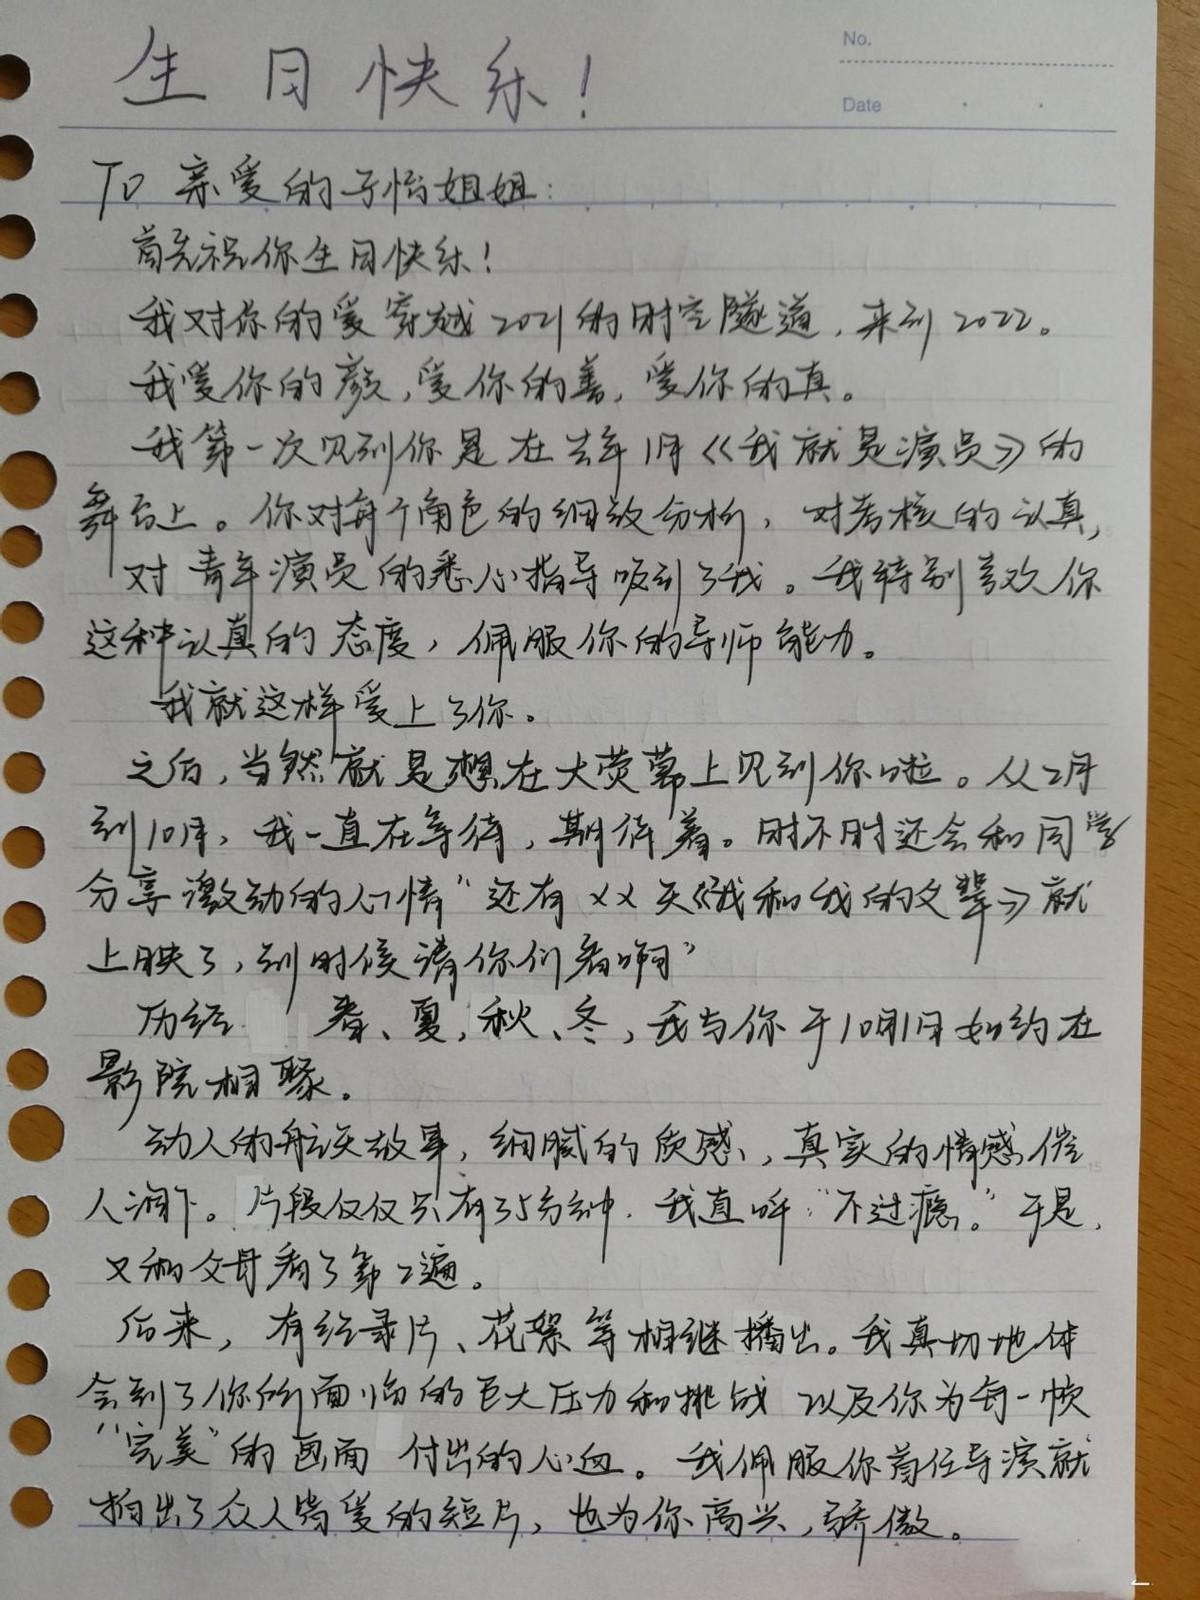 No.
Date
生日快乐!
TO 亲爱的子怡姐姐:
首先祝你生日快乐!
我对你的爱穿越2021的时空隧道,来到2022。
我爱你的颜,爱你的善,爱你的真。
我第一次见到你是在去年1月《我就是演员》的
舞台上。你对每个角色的细致分析,对考核的认真,
对青年演员的悉心指导吸引了我。我特别喜欢你
这种认真的态度,佩服你的导师能力。
我就这样爱上了你。
之后,当然就是想在大荧幕上见到你啦。从2月
到10月,我一直在等待,期待着。时不时还会和同学
分享激动的心情"还有XX天《我和我的父辈》就
上映了,到时候请你们看啊"
历经 春、夏,秋、冬,我与你于10月1日如约在
影院相聚。
动人的航天故事,细腻的质感,真实的情感催
人泪下。片段仅仅只有35分钟.我直呼:"不过瘾。"于是,
又和父母看了第2遍。
后来,有纪录片、花絮等相继播出。我真切地体
会到了你所面临的巨大压力和挑战 以及你为每一帧
"完美"的画面 付出的心血。我佩服你首任导演就
拍出了众人喜爱的短片,也为你高兴,骄傲。